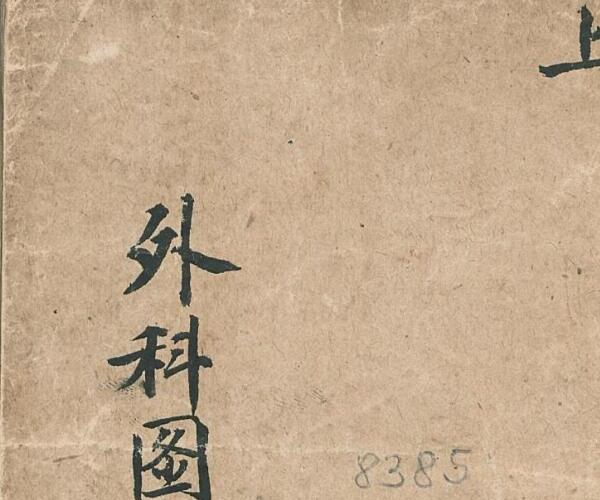 上
外科图
8385